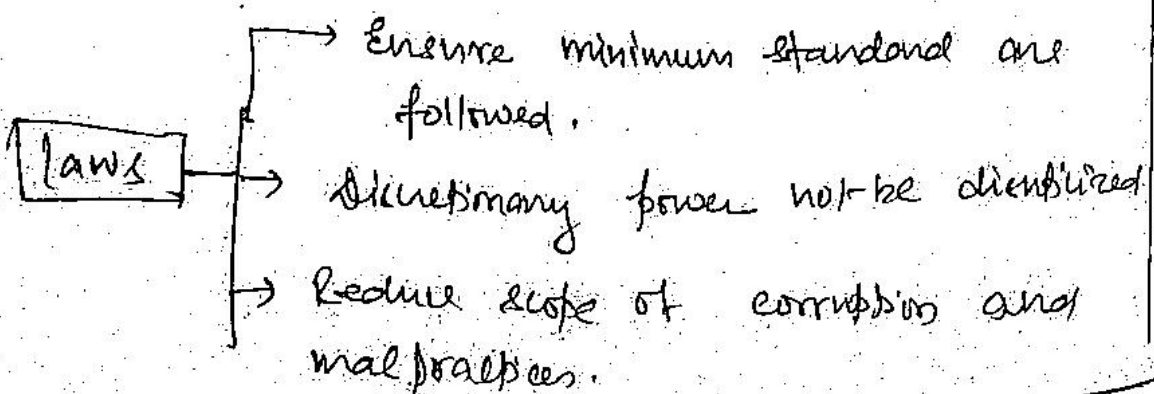 Ensure minimum standard are
followed.
Laws
Discretionary power not be
Reduce scope of corruption and
malpractices.